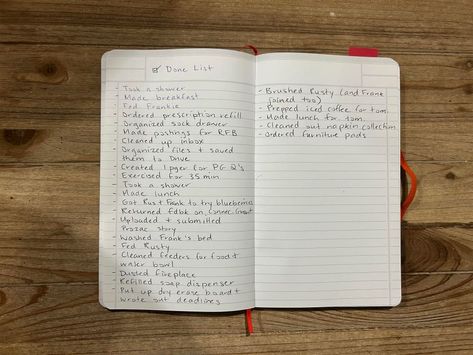 Done List
- Took a shower
- Made breakfast
- Fed Frankie
- Ordered prescription refill
- Organized sock drawer
- Made postings for RFB
- Cleaned up inbox
- Organized files + saved
them to Drive
- Created 1 pger for PG Q's
- Exercised for 35 min
- Took a shower
- Made lunch
- Got Rus + Frank to try blueberries
- Returned fdbk on
- Uploaded + submitted
Prozac story
- Washed Frank's bed
- Fed Rusty
- Cleaned feeders for food +
water bowl
- Dusted fireplace
- Refilled soap dispenser
- Put up dry erase board +
wrote out deadlines
- Brushed Rusty (and Frank
joined too)
- Prepped iced coffee for tom.
- Made lunch for tom.
- Cleaned out napkin collection
- Ordered furniture pads